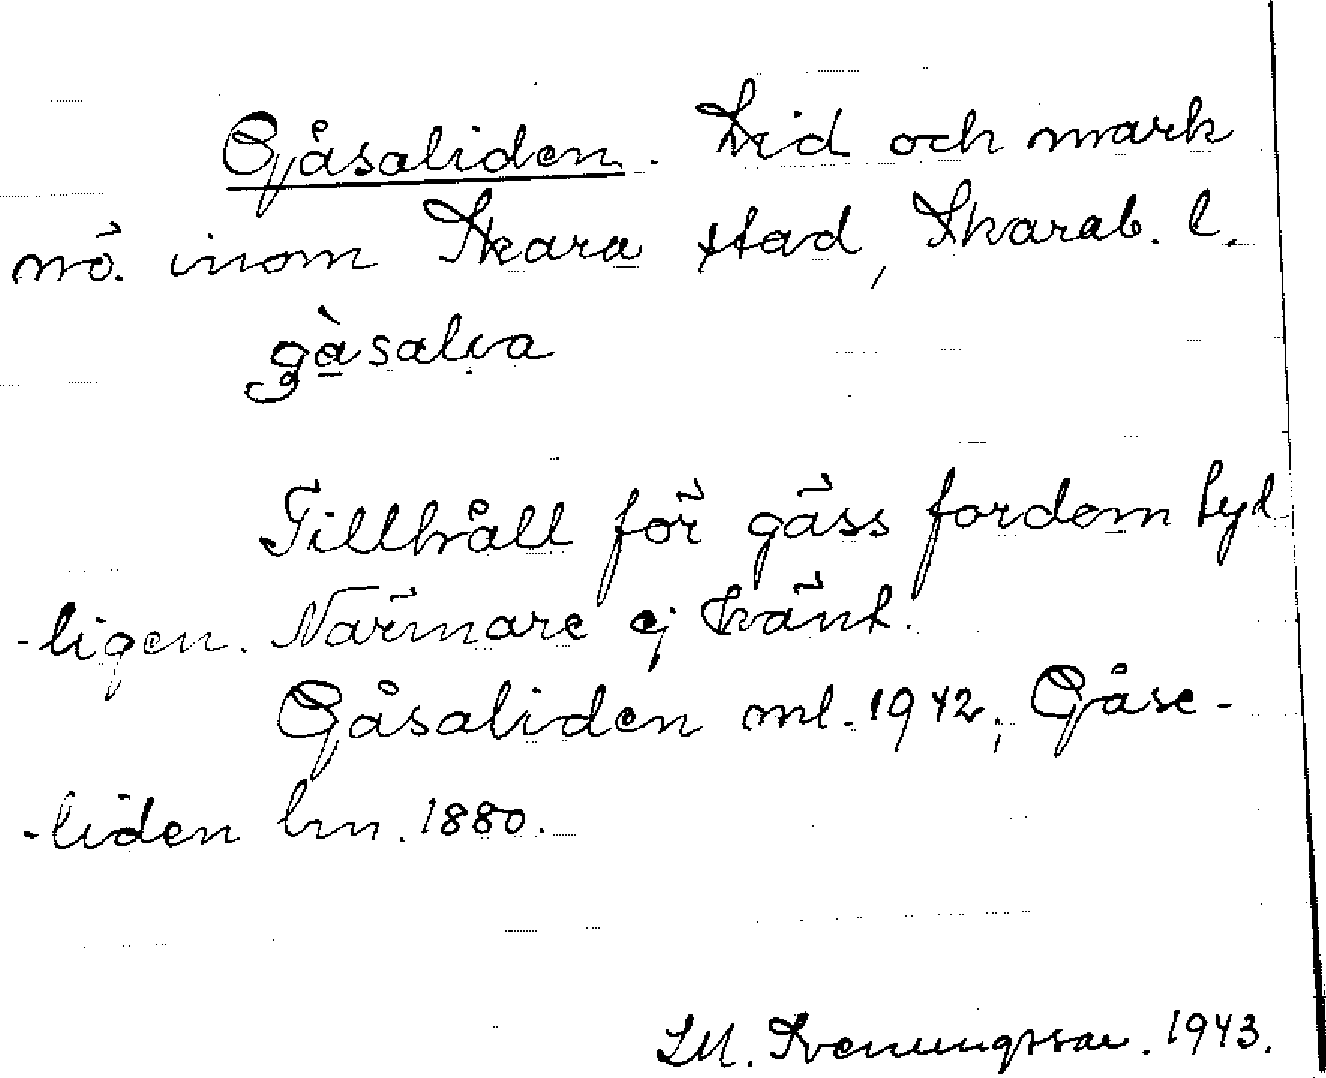 Gåsaliden. Lid och mark
nö. inom Skara stad, Skarab. l.
gå̀saliva
Tillhåll för gäss fordom tyd
-ligen. Närmare ej känt.
Gåsaliden ml. 1942; Gåse-
-liden hm. 1880.
S.M. Svenungsson. 1943.